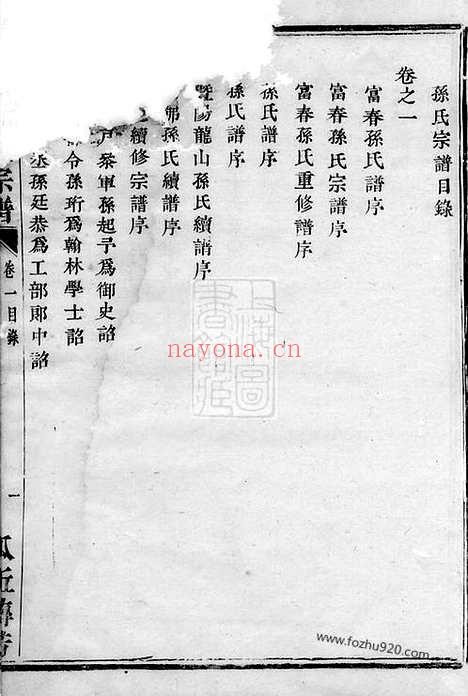 孫氏宗譜目錄
卷之一
富春孫氏譜序
富春孫氏宗譜序
富春孫氏重修譜序
孫氏譜序
孫氏譜序
暨陽龍山孫氏續譜序
孫氏續譜序
續修宗譜序
尹叅軍孫起予為御史詔
令孫珩為翰林學士詔
丞孫廷恭為工部郎中詔
宗譜
卷一目錄
一
nayona.cn
www.fozhu920.com